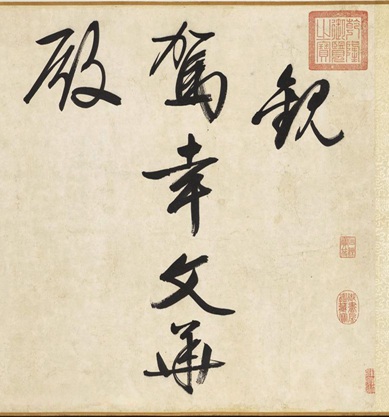 乾隆御覽之寶
觀
駕幸文華
殿